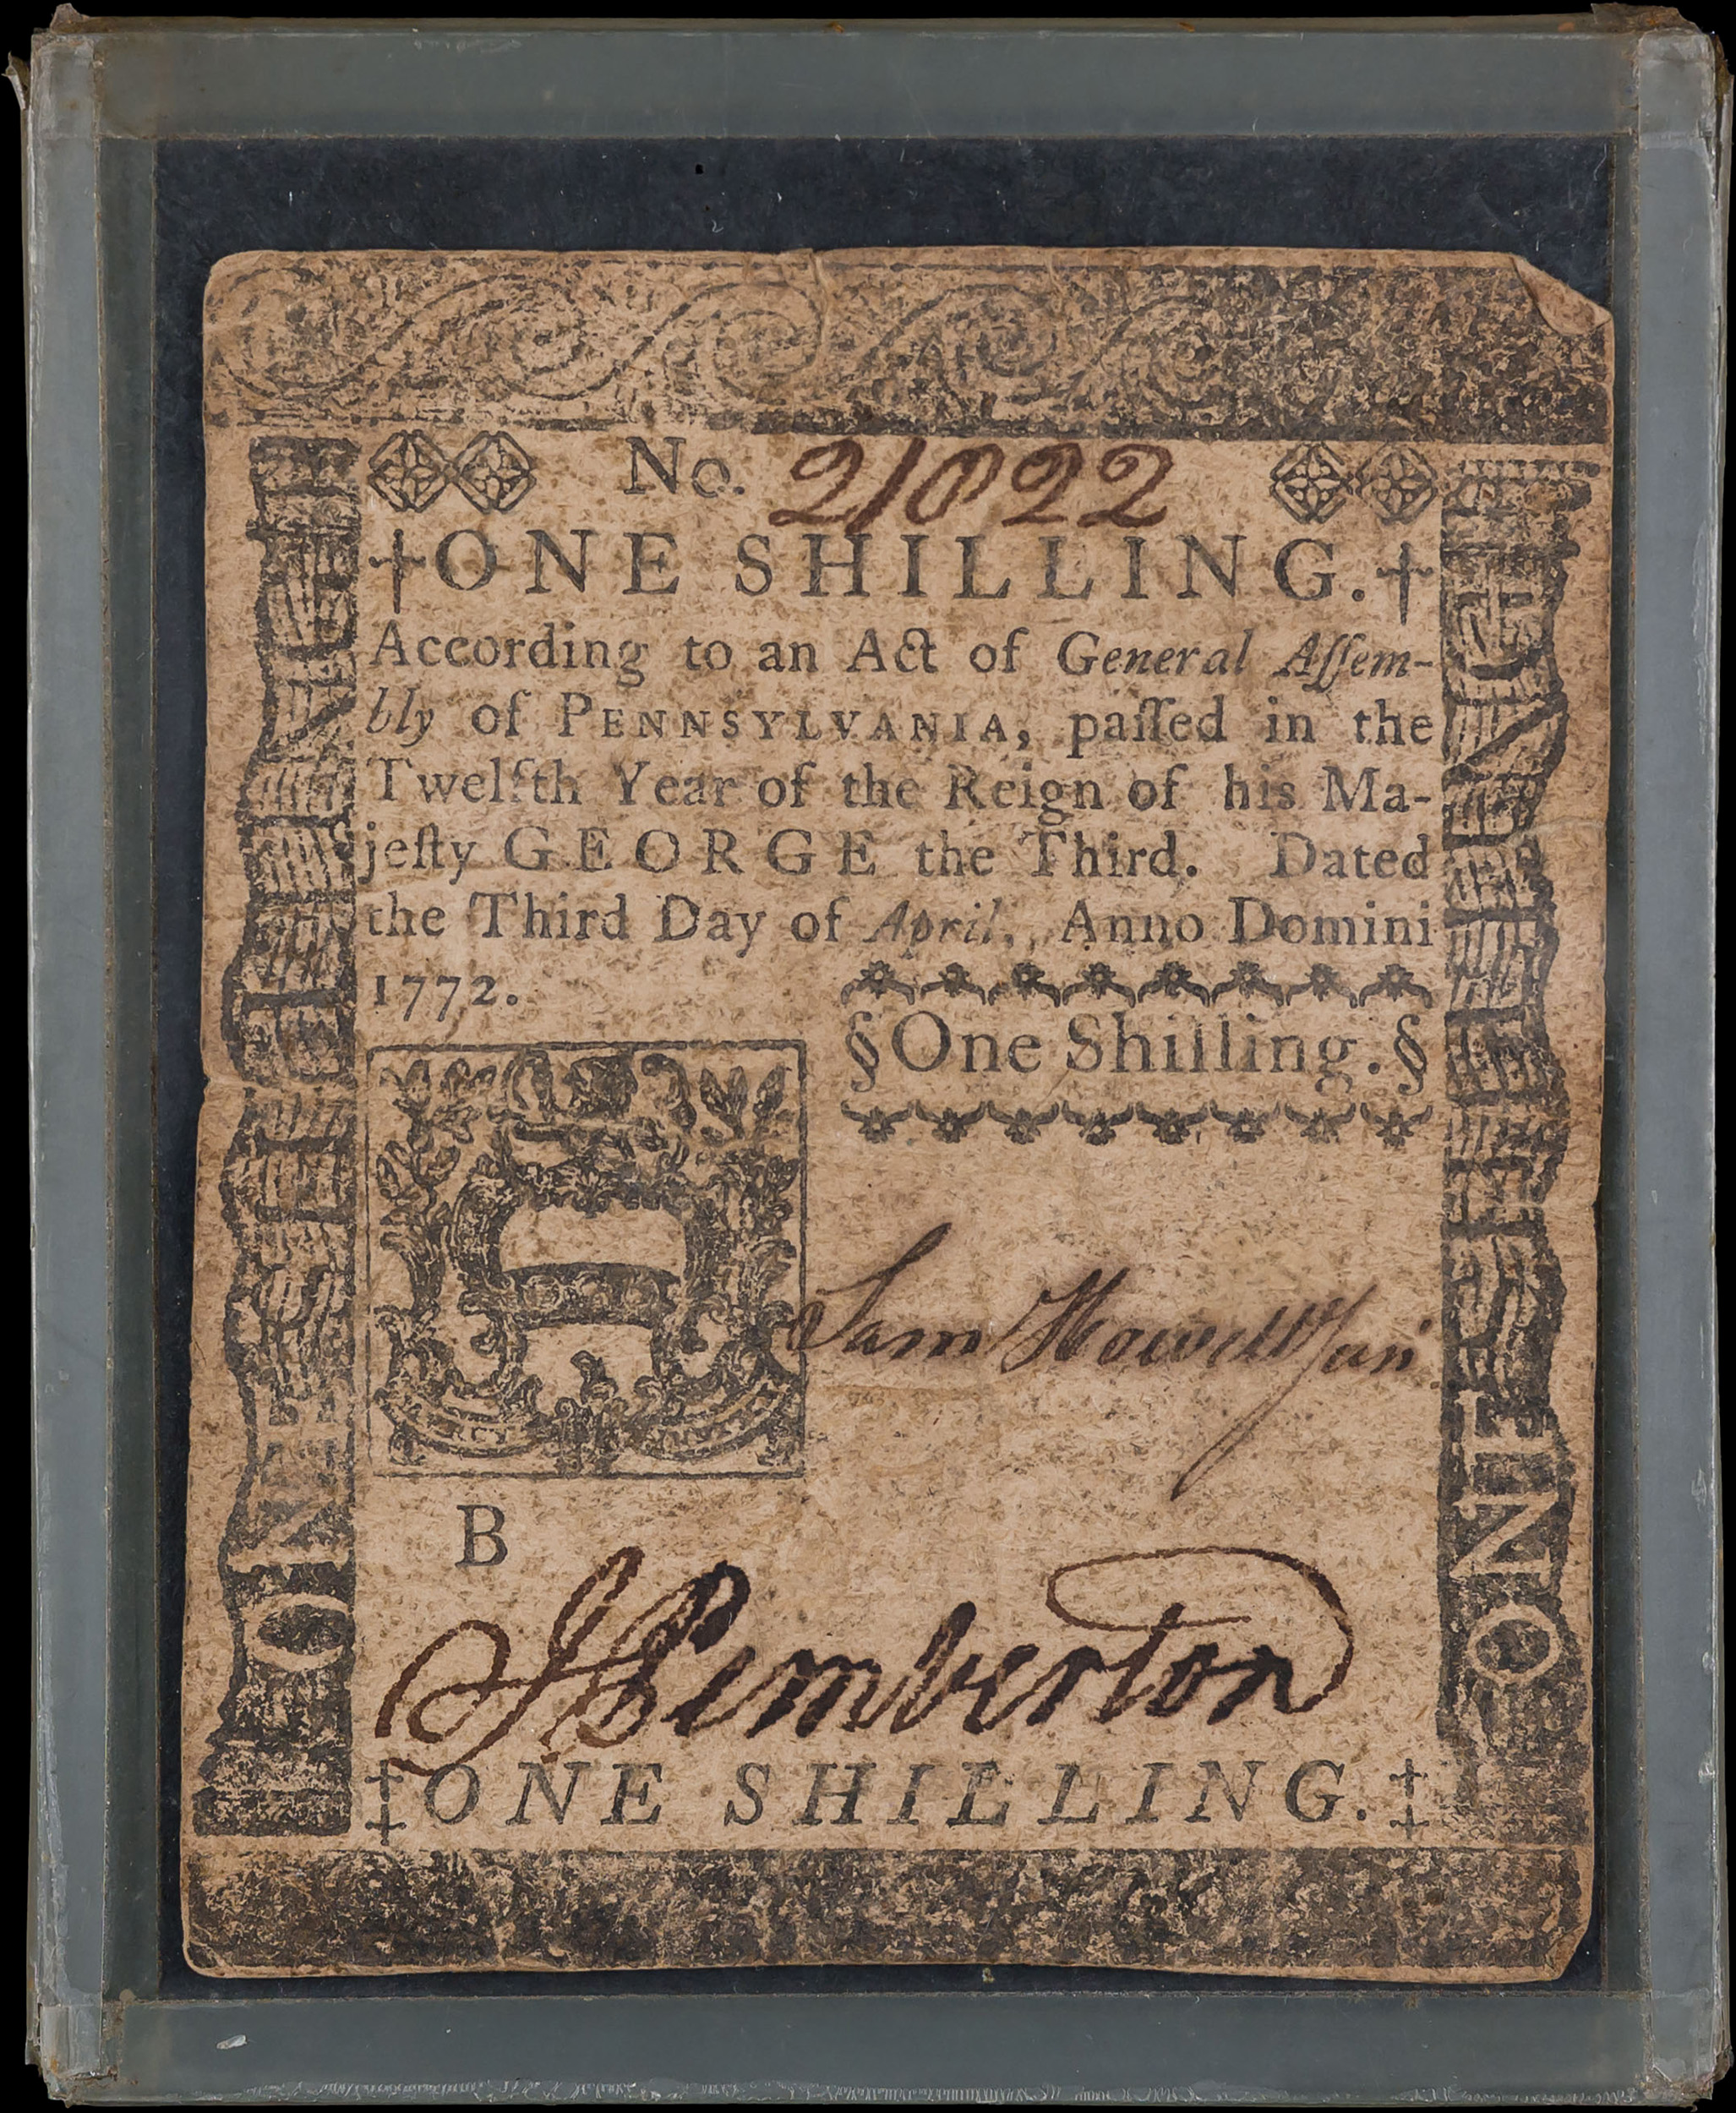 No. 21022
†ONE SHILLING.†
According to an Act of General Aſſem-
bly of PENNSYLVANIA, paſſed in the
Twelfth Year of the Reign of his Ma-
jeſty GEORGE the Third. Dated
the Third Day of April, Anno Domini
1772.
§One Shilling.§
Sam Howell Jun
B
J Pemberton
‡ONE SHILLING.‡
ONE
ONE